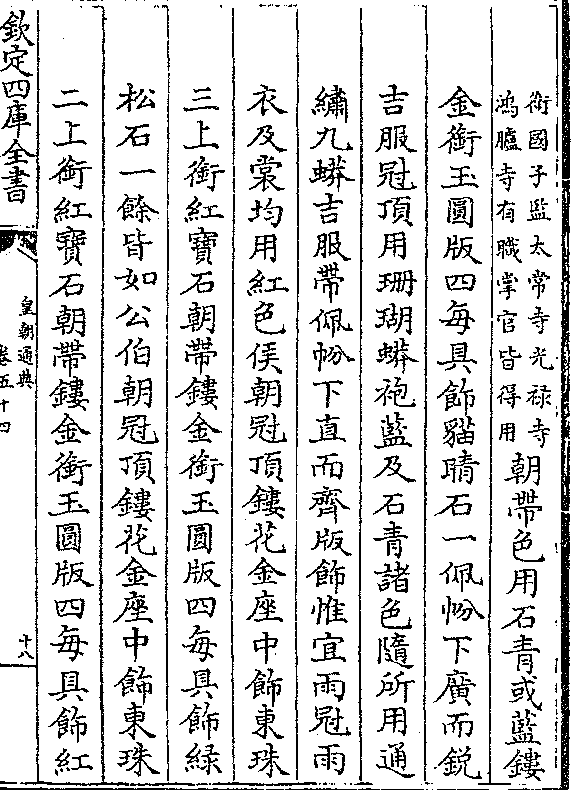 衔國子監太常寺光禄寺
鴻臚寺有職掌官皆得用
朝帶色用石青或藍鏤
金銜玉圓版四每具飾貓睛石一佩帉下廣而銳
吉服冠頂用珊瑚蟒袍藍及石青諸色隨所用通
繡九蟒吉服帶佩帉下直而齊版飾惟宜雨冠雨
衣及裳均用紅色侯朝冠頂鏤花金座中飾東珠
三上銜紅寶石朝帶鏤金銜玉圓版四每具飾緑
松石一餘皆如公伯朝冠頂鏤花金座中飾東珠
二上銜紅寶石朝帶鏤金銜玉圓版四每具飾紅
欽定四庫全書
皇朝通典
卷五十四
十八